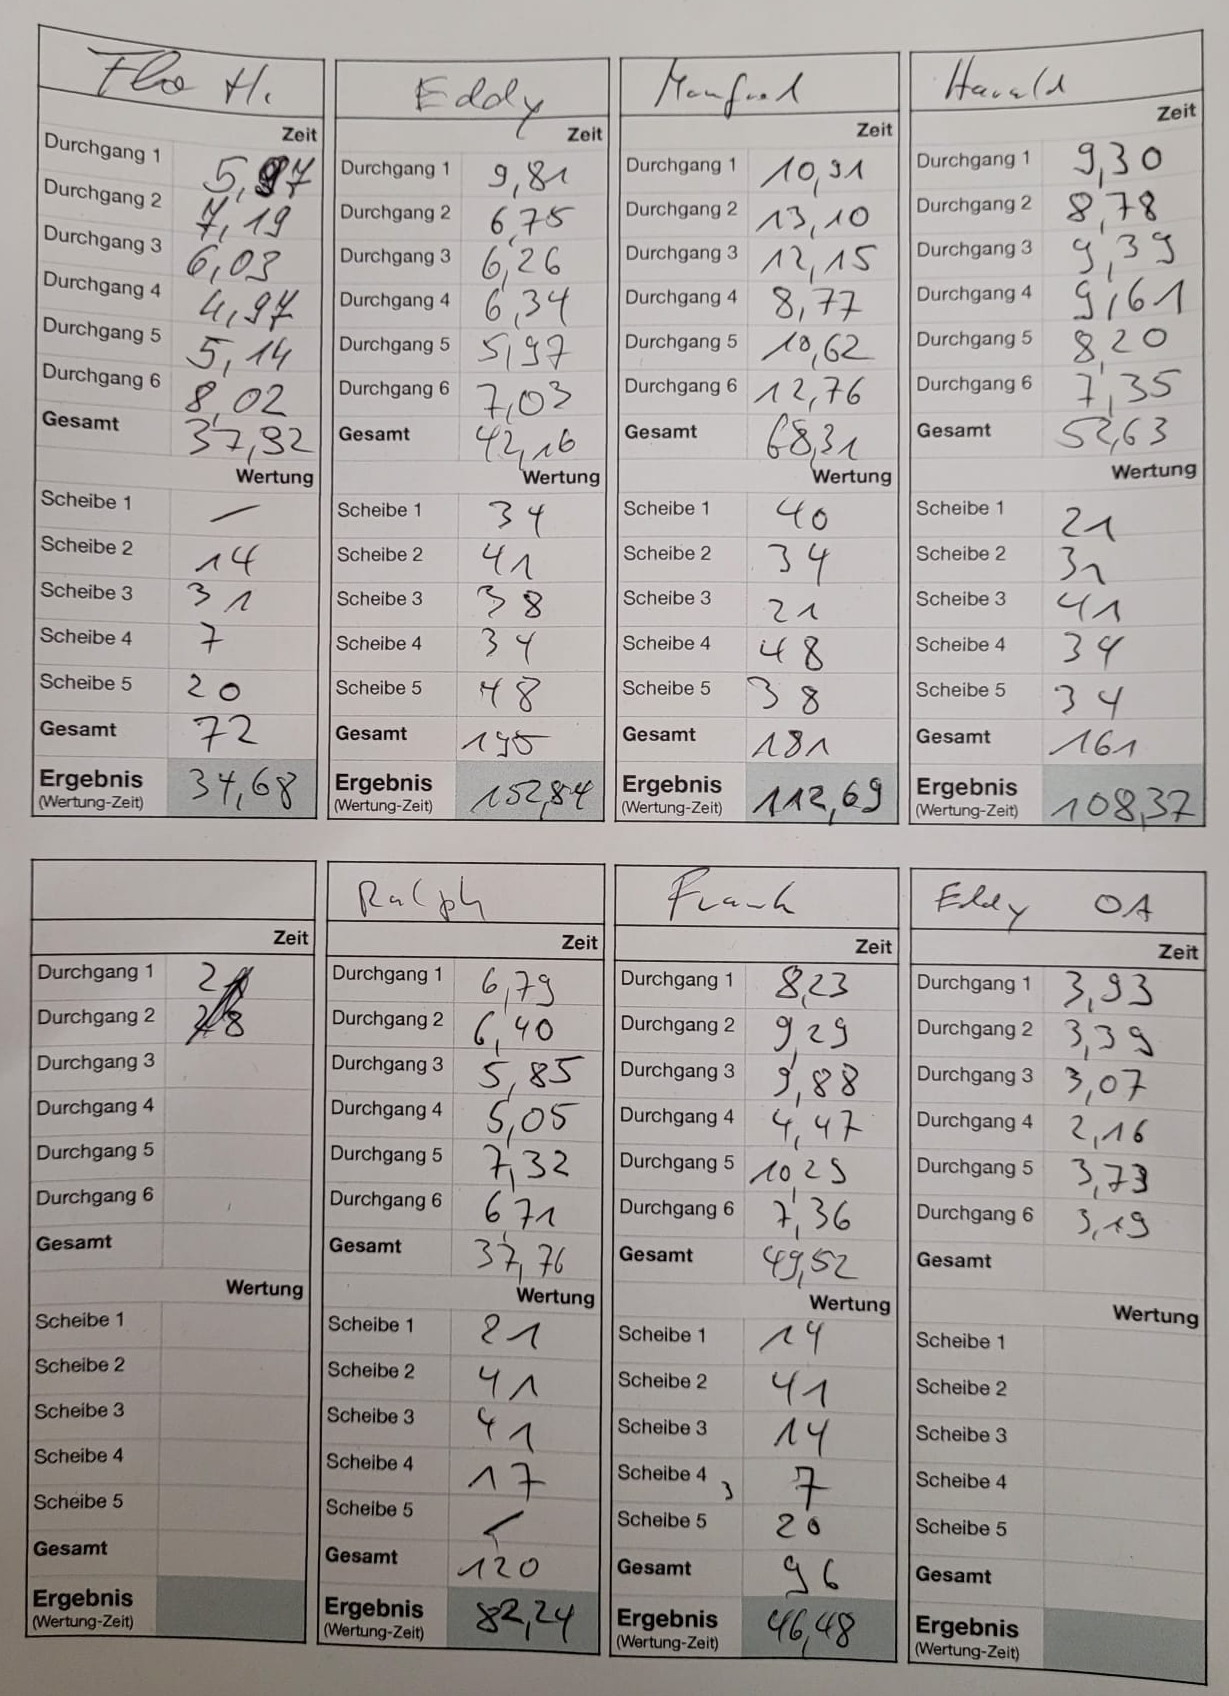 Flo H.
Zeit
Durchgang 1 5,97
Durchgang 2 7,19
Durchgang 3 6,03
Durchgang 4 4,97
Durchgang 5 5,14
Durchgang 6 8,02
Gesamt 37,32
Wertung
Scheibe 1 —
Scheibe 2 14
Scheibe 3 31
Scheibe 4 7
Scheibe 5 20
Gesamt 72
Ergebnis 34,68
(Wertung-Zeit)
Eddy
Zeit
Durchgang 1 9,81
Durchgang 2 6,75
Durchgang 3 6,26
Durchgang 4 6,34
Durchgang 5 5,97
Durchgang 6 7,03
Gesamt 42,16
Wertung
Scheibe 1 34
Scheibe 2 41
Scheibe 3 38
Scheibe 4 34
Scheibe 5 48
Gesamt 195
Ergebnis 152,84
(Wertung-Zeit)
Manfred
Zeit
Durchgang 1 10,91
Durchgang 2 13,10
Durchgang 3 12,15
Durchgang 4 8,77
Durchgang 5 10,62
Durchgang 6 12,76
Gesamt 68,31
Wertung
Scheibe 1 40
Scheibe 2 34
Scheibe 3 21
Scheibe 4 48
Scheibe 5 38
Gesamt 181
Ergebnis 112,69
(Wertung-Zeit)
Harald
Zeit
Durchgang 1 9,30
Durchgang 2 8,78
Durchgang 3 9,39
Durchgang 4 9,61
Durchgang 5 8,20
Durchgang 6 7,35
Gesamt 52,63
Wertung
Scheibe 1 21
Scheibe 2 31
Scheibe 3 41
Scheibe 4 34
Scheibe 5 34
Gesamt 161
Ergebnis 108,37
(Wertung-Zeit)
Zeit
Durchgang 1
Durchgang 2
Durchgang 3
Durchgang 4
Durchgang 5
Durchgang 6
Gesamt
Wertung
Scheibe 1
Scheibe 2
Scheibe 3
Scheibe 4
Scheibe 5
Gesamt
Ergebnis
(Wertung-Zeit)
Ralph
Zeit
Durchgang 1 6,79
Durchgang 2 6,40
Durchgang 3 5,85
Durchgang 4 5,05
Durchgang 5 7,32
Durchgang 6 6,71
Gesamt 37,76
Wertung
Scheibe 1 21
Scheibe 2 41
Scheibe 3 41
Scheibe 4 17
Scheibe 5
Gesamt 120
Ergebnis 82,24
(Wertung-Zeit)
Frank
Zeit
Durchgang 1 8,23
Durchgang 2 9,29
Durchgang 3 9,88
Durchgang 4 4,47
Durchgang 5 10,29
Durchgang 6 7,36
Gesamt 49,52
Wertung
Scheibe 1 14
Scheibe 2 41
Scheibe 3 14
Scheibe 4 3 7
Scheibe 5 20
Gesamt 96
Ergebnis 46,48
(Wertung-Zeit)
Eddy OA
Zeit
Durchgang 1 3,93
Durchgang 2 3,39
Durchgang 3 3,07
Durchgang 4 2,16
Durchgang 5 3,73
Durchgang 6 3,19
Gesamt
Wertung
Scheibe 1
Scheibe 2
Scheibe 3
Scheibe 4
Scheibe 5
Gesamt
Ergebnis
(Wertung-Zeit)